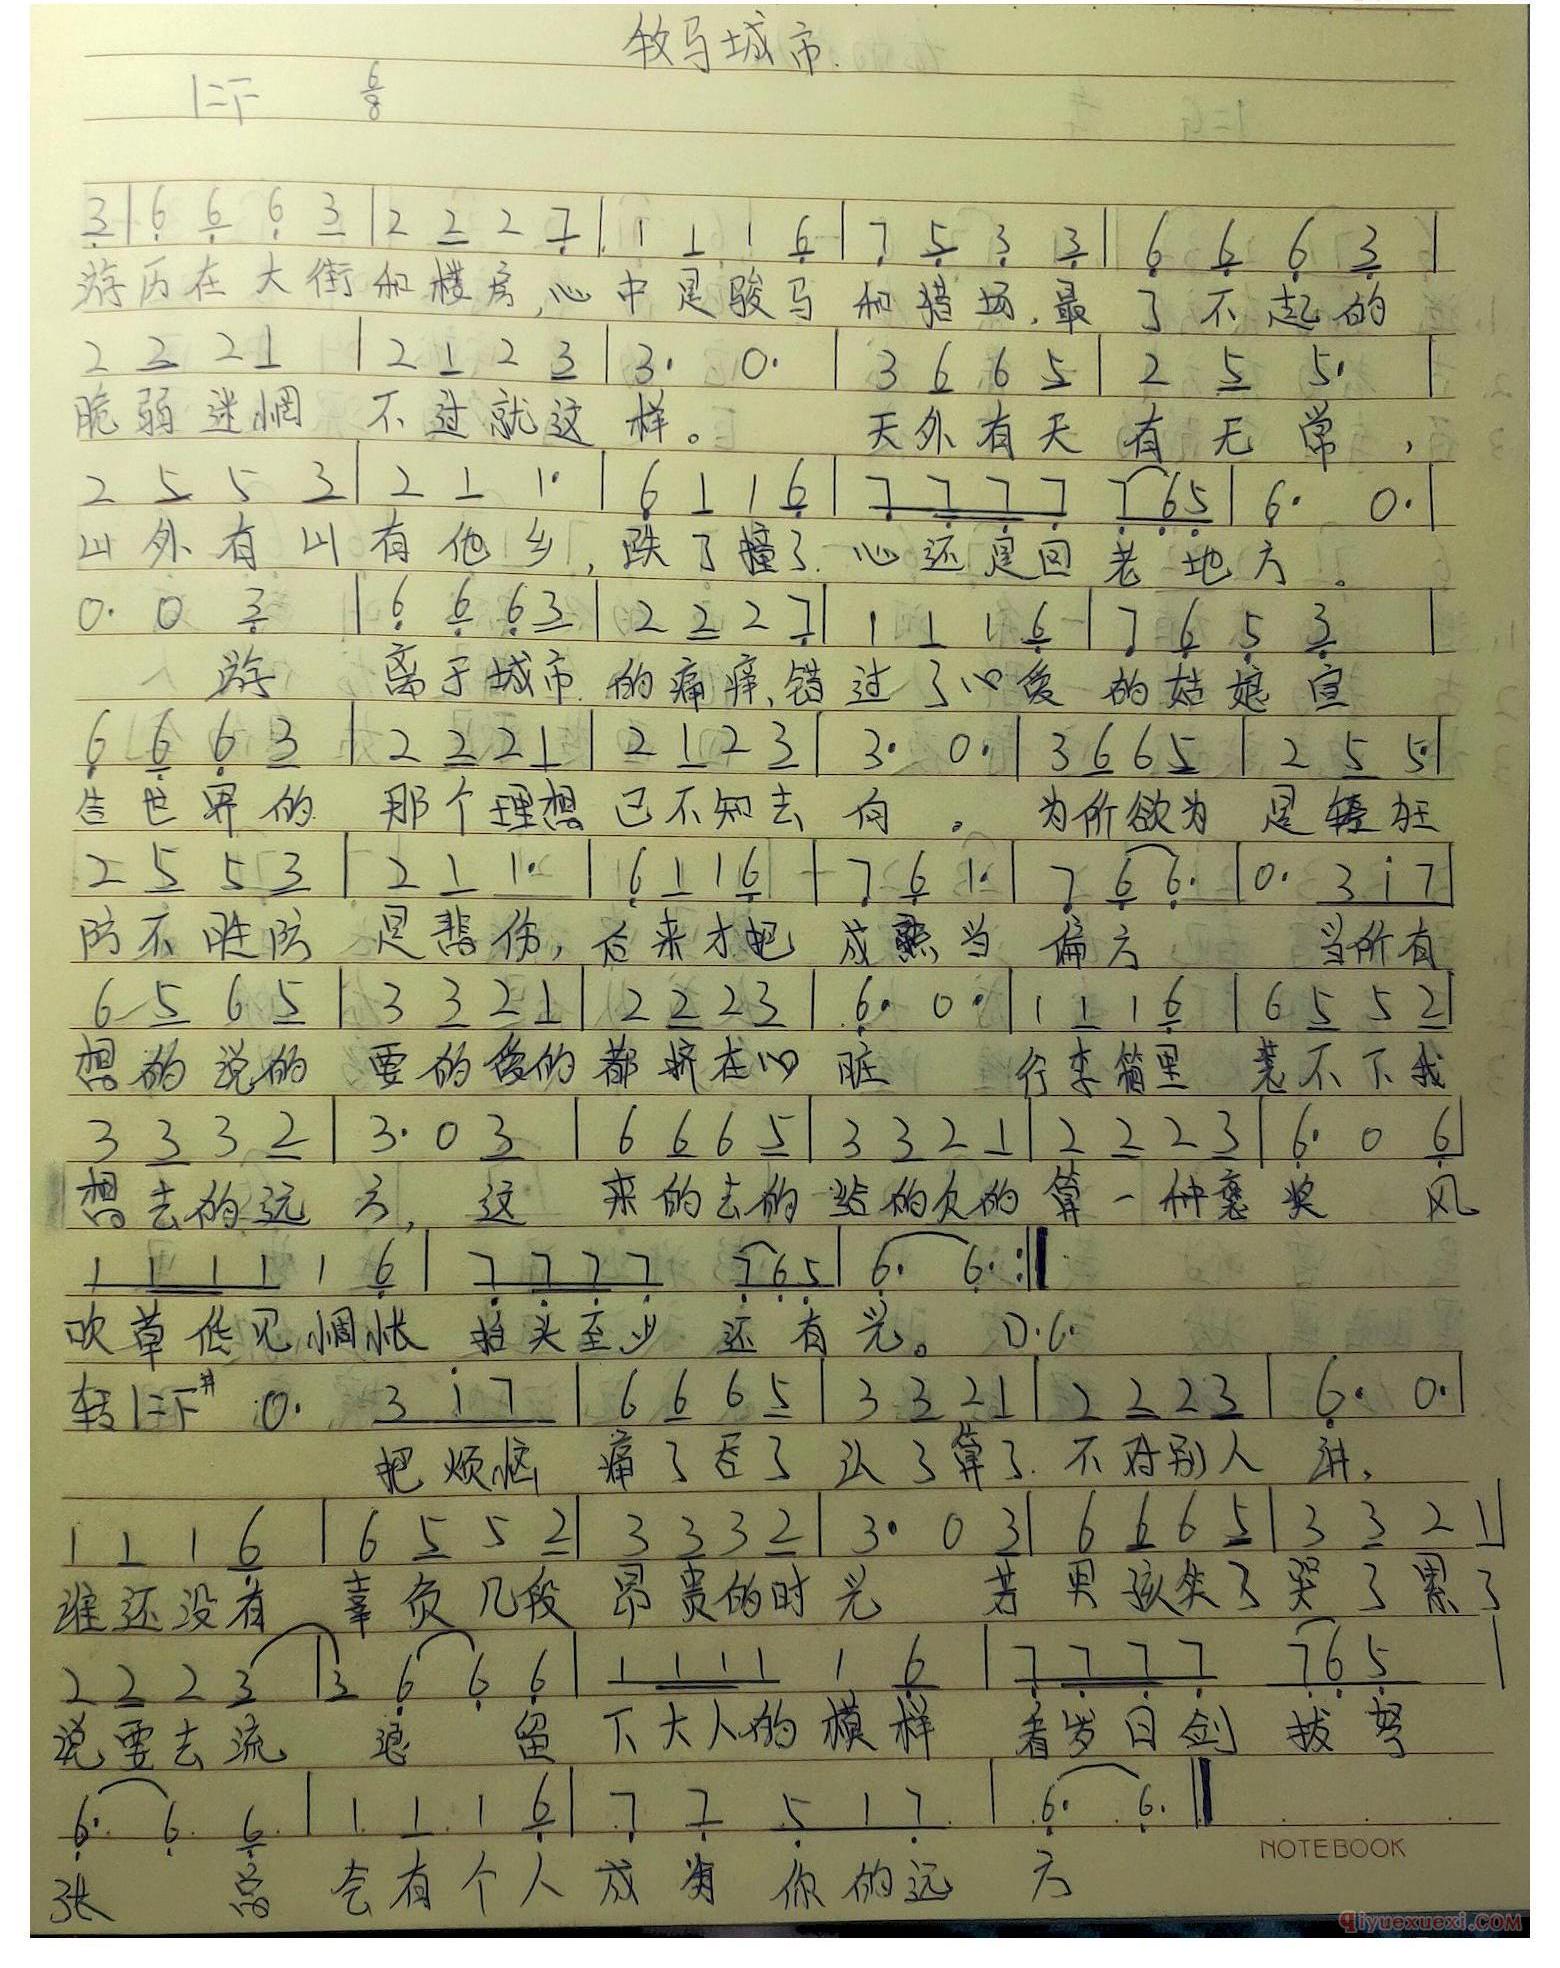 牧马城市.
1=F 6/8
3|6 6 6 3|2 2 2 7|1 1 1 6|7 5 3 3|6 6 6 3|
游历在大街和楼房,心中是骏马和猎场,最了不起的
2 2 2 1|2 1 2 3|3· 0·|3 6 6 5|2 5 5·|
脆弱迷惘 不过就这样。 天外有天 有无常,
2 5 5 3|2 1 1·|6 1 1 6|7 7 7 7 7 6 5|6· 0·|
山外有山有他乡,跌了撞了.心还是回老地方。
0· 0 3|6 6 6 3|2 2 2 7|1 1 1 6|7 6 5 3|
游 离于城市.的痛痒,错过了心爱的姑娘 宣
6 6 6 3|2 2 2 1|2 1 2 3|3· 0·|3 6 6 5|2 5 5·|
告世界的 那个理想已不知去向。 为所欲为 是轻狂
2 5 5 3|2 1 1·|6 1 1 6|7 6 1·|7 6 6·|0· 3 i 7|
防不胜防 是悲伤,后来才把 成熟当 偏方 当所有
6 5 6 5|3 3 2 1|2 2 2 3|6· 0·|1 1 1 6|6 5 5 2|
想的说的 要的爱的都挤在心脏 行李箱里 装不下我
3 3 3 2|3· 0 3|6 6 6 5|3 3 2 1|2 2 2 3|6· 0 6|
想去的远方, 这 来的去的 的欠的算一种褒奖 风
1 1 1 1 1 6|7 7 7 7 7 6 5|6· 6·:‖
吹草低见惆怅 抬头至少 还有光。 D.C.
转1=F# 0· 3 i 7|6 6 6 5|3 3 2 1|2 2 2 3|6· 0·|
把烦恼 痛了吞了 认了算了.不对别人讲,
1 1 1 6|6 5 5 2|3 3 3 2|3· 0 3|6 6 6 5|3 3 2 1|
谁还没有 辜负几段 昂贵的时光 若 男孩笑了哭了累了
2 2 2 3|3 6 6 6|1 1 1 1 1 6|7 7 7 7 7 6 5|
说要去流 浪 留 下大人的模样 看岁日剑 拔弩
6· 6 6|1 1 1 6|7 7 5 1 7|6· 6·‖
张 会有个人 成为 你的远 方
NOTEBOOK
qiyuexuexi.COM